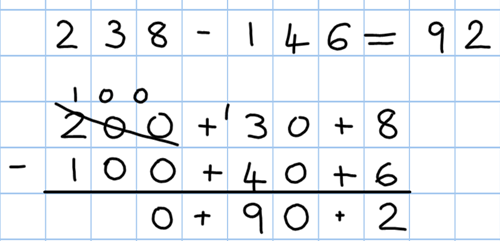 238 - 146 = 92
100
200 + 130 + 8
- 100 + 40 + 6
0 + 90 + 2